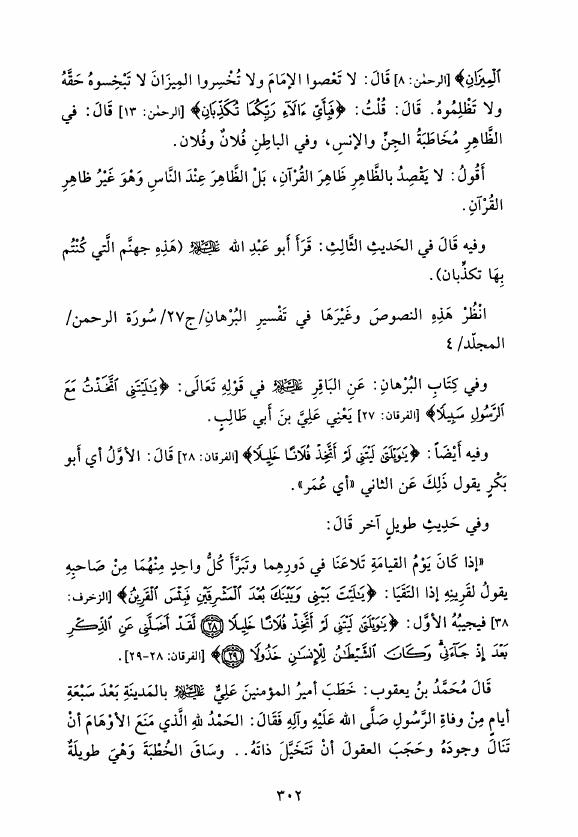 ٱلْمِيزَانِ﴾ [الرحمٰن: ٨] قَالَ: لا تَعْصوا الإمَامَ ولا تُخْسِروا المِيزَانَ لا تَبْخِسوهُ حَقَّهُ
ولا تَظْلِمُوهُ. قَالَ: قُلْتُ: ﴿فَبِأَيِّ ءَالَآءِ رَبِّكُمَا تُكَذِّبَانِ﴾ [الرحمٰن: ١٣] قَالَ: في
الظَّاهِرِ مُخَاطَبَةُ الجِنِّ والإنسِ، وفي الباطِنِ فُلانٌ وفُلان.
أَقُولُ: لا يَقْصِدُ بالظَّاهِرِ ظَاهِرَ القُرْآنِ، بَلْ الظَّاهِرَ عِنْدَ النَّاسِ وَهوَ غَيْرُ ظاهِرِ
القُرْآنِ.
وفيه قَالَ في الحَديثِ الثَّالِثِ: قَرَأَ أَبو عَبْدِ الله عليه السلام (هَذِهِ جهنَّم الَّتي كُنْتُم
بِهَا تكذِّبان).
انْظُرْ هَذِهِ النصوصَ وغَيْرَهَا في تَفْسيرِ البُرْهانِ/ج٢٧/سُورَة الرحمن/
المجلّد/٤
وفي كِتَابِ البُرْهانِ: عَنِ البَاقِرِ عليه السلام في قَوْلِهِ تَعَالَى: ﴿يَٰلَيْتَنِى ٱتَّخَذْتُ مَعَ
ٱلرَّسُولِ سَبِيلًا﴾ [الفرقان: ٢٧] يَعْنِي عَلِيَّ بنَ أَبي طَالِبٍ.
وفيه أَيْضَاً: ﴿يَٰوَيْلَتَىٰ لَيْتَنِى لَمْ أَتَّخِذْ فُلَانًا خَلِيلًا﴾ [الفرقان: ٢٨] قَالَ: الأوَّلُ أي أَبو
بَكْرٍ يقول ذَلِكَ عَن الثاني «أي عُمَر».
وفي حَدِيثٍ طويلٍ آخر قَالَ:
«إذا كَانَ يَوْمُ القيامَةِ تَلاعَنَا في دَورِهِما وتَبَرَّأَ كُلُّ واحِدٍ مِنْهُمَا مِنْ صَاحبِهِ
يقولُ لقَرِينِهِ إذا التَقَيَا: ﴿يَٰلَيْتَ بَيْنِى وَبَيْنَكَ بُعْدَ ٱلْمَشْرِقَيْنِ فَبِئْسَ ٱلْقَرِينُ﴾ [الزخرف:
٣٨] فيجيبُهُ الأوَّل: ﴿يَٰوَيْلَتَىٰ لَيْتَنِى لَمْ أَتَّخِذْ فُلَانًا خَلِيلًا ٢٨ لَّقَدْ أَضَلَّنِى عَنِ ٱلذِّكْرِ
بَعْدَ إِذْ جَآءَنِى وَكَانَ ٱلشَّيْطَٰنُ لِلْإِنسَٰنِ خَذُولًا ٢٩﴾ [الفرقان: ٢٨-٢٩].
قَالَ مُحَمَّدُ بنُ يعقوب: خَطَبَ أميرُ المؤمنينَ عَلِيٌّ عليه السلام بالمَدينَةِ بَعْدَ سَبْعَةِ
أيامٍ مِنْ وفاةِ الرَّسُولِ صَلَّى الله عَلَيْهِ وآلِهِ فَقَالَ: الحَمْدُ للهِ الَّذي مَنَعَ الأوْهَامَ أنْ
تَنَالَ وجودَهُ وحَجَبَ العقولَ أنْ تَتَخَيَّلَ ذاتَهُ.. وساقَ الخُطْبَةَ وَهْيَ طويلَةٌ
٣٠٢